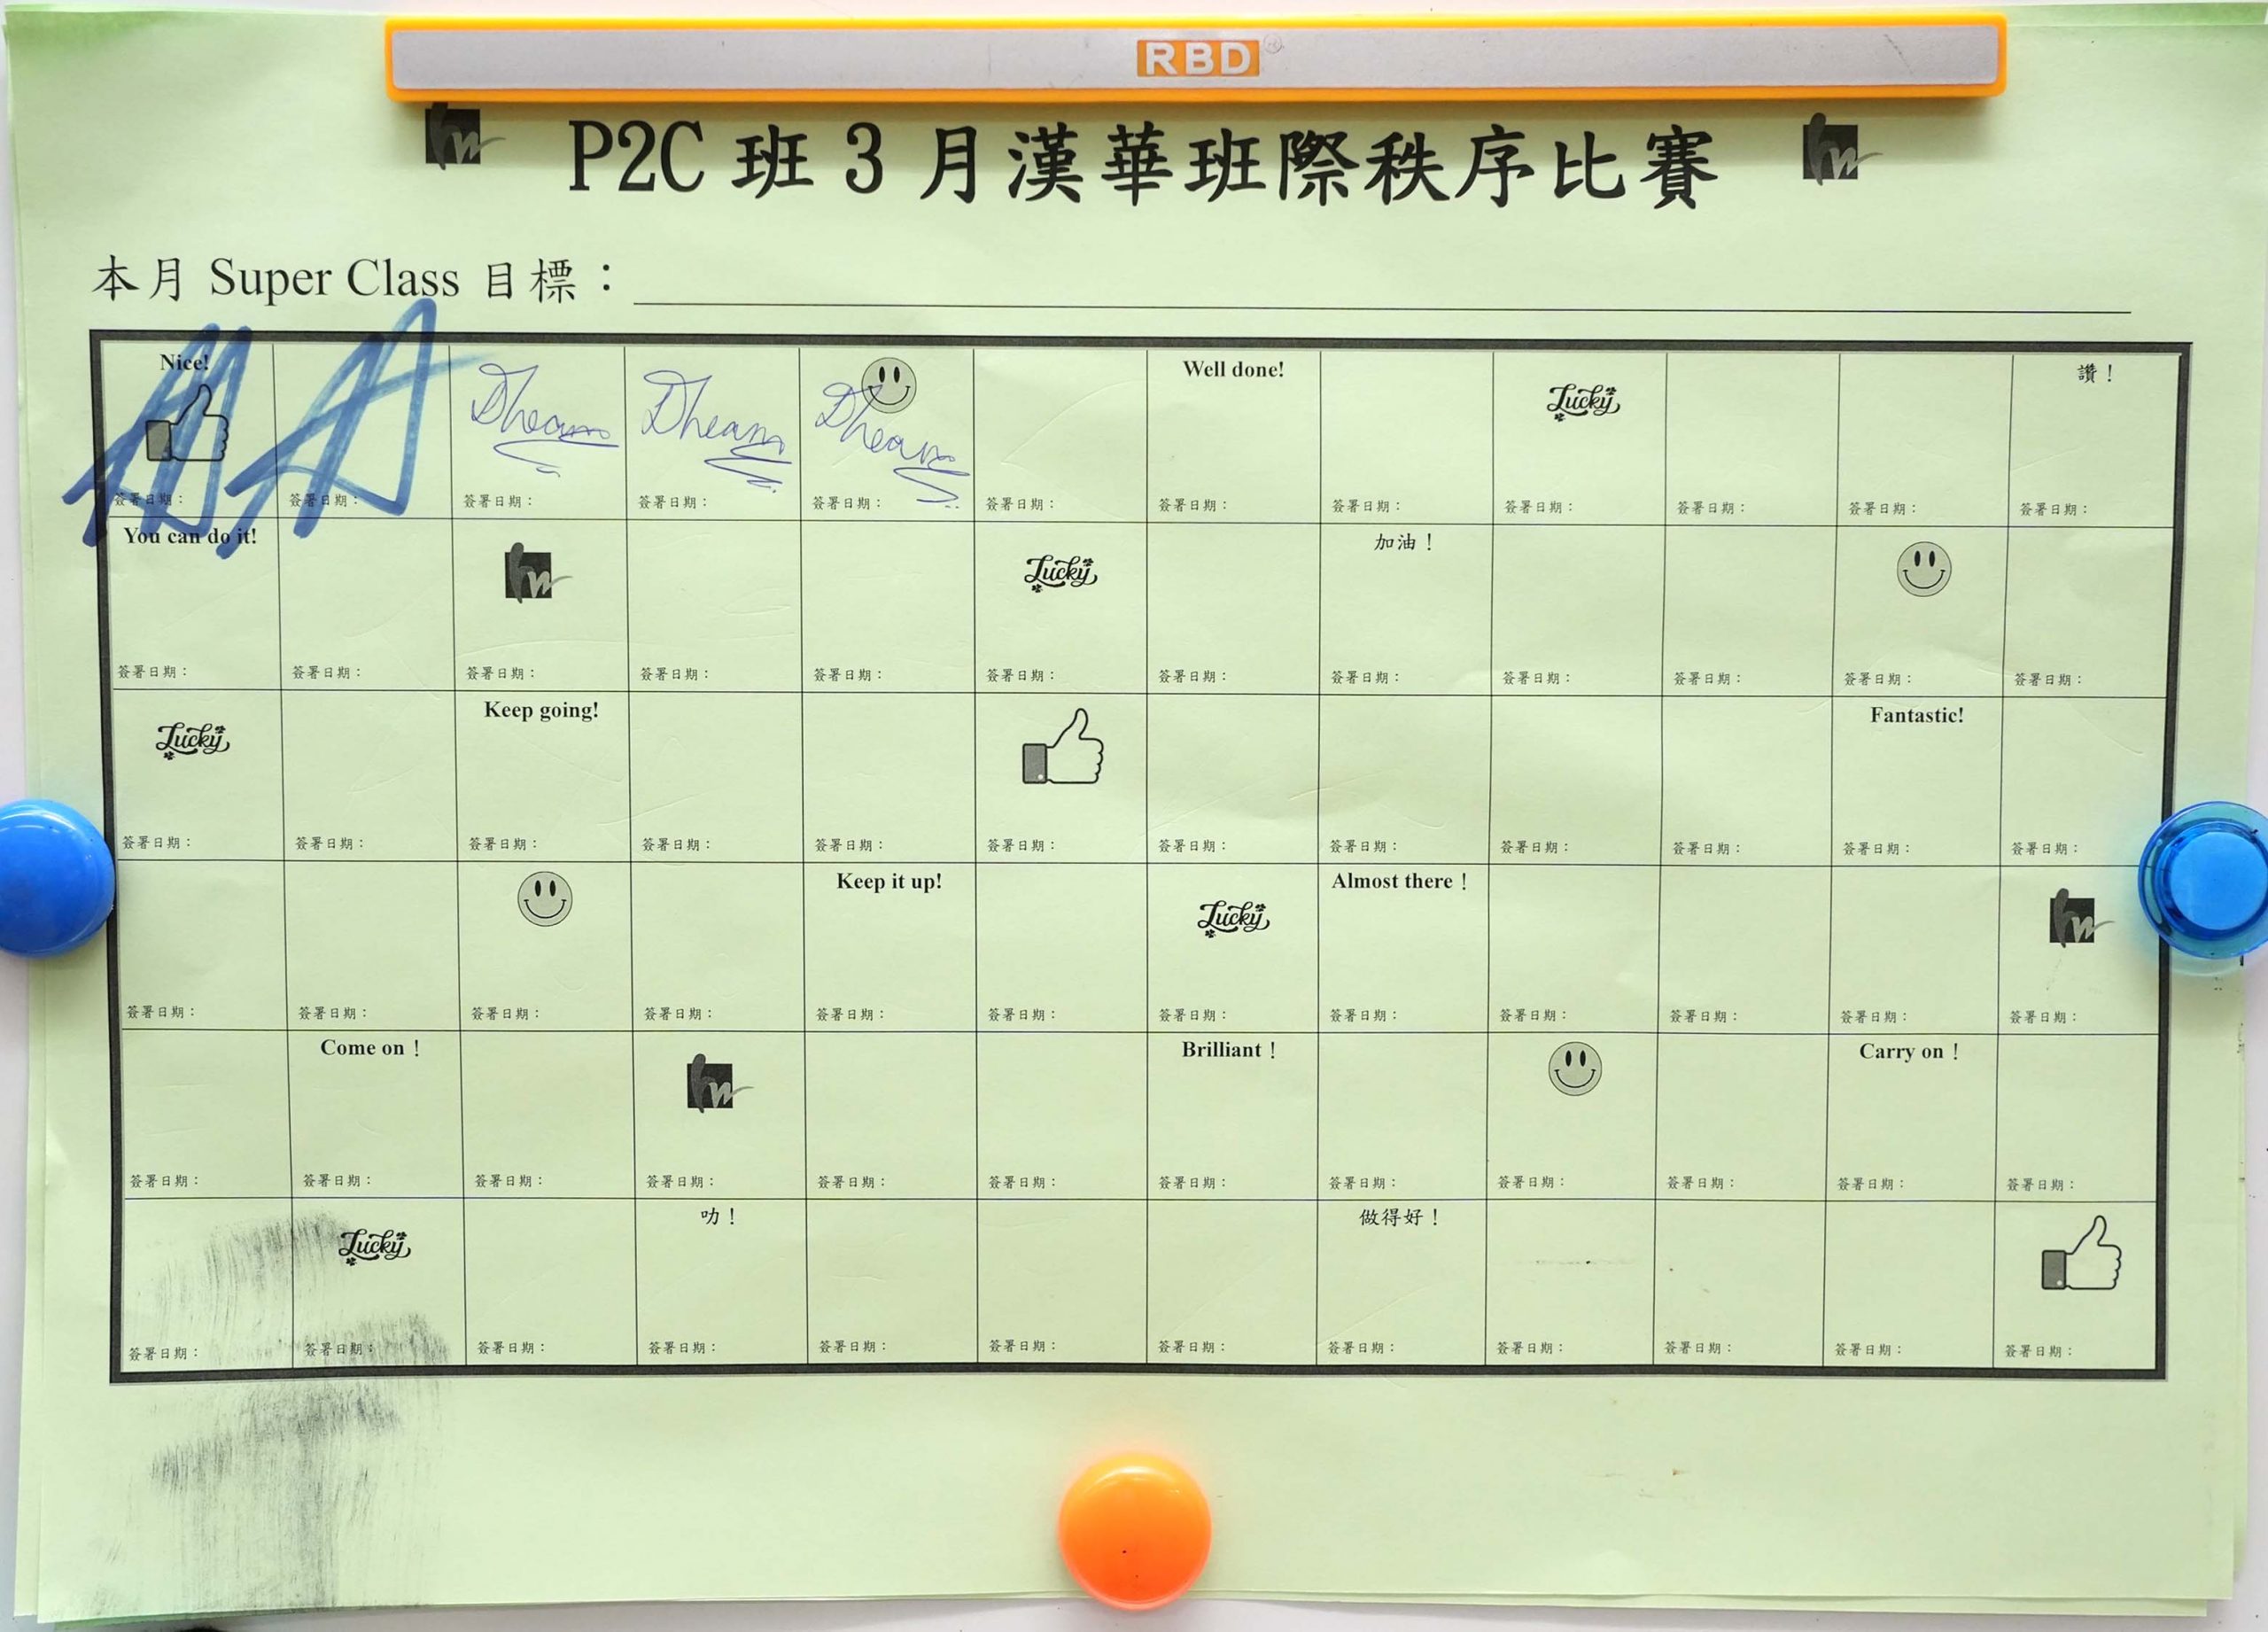 RBD
P2C 班 3 月漢華班際秩序比賽
本月 Super Class 目標：
Nice! Well done! Lucky 讚！
Dheam Dheam Dheam
簽署日期： 簽署日期： 簽署日期： 簽署日期： 簽署日期： 簽署日期： 簽署日期： 簽署日期： 簽署日期： 簽署日期： 簽署日期： 簽署日期：
You can do it! hw Lucky 加油！
簽署日期： 簽署日期： 簽署日期： 簽署日期： 簽署日期： 簽署日期： 簽署日期： 簽署日期： 簽署日期： 簽署日期： 簽署日期： 簽署日期：
Lucky Keep going! Fantastic!
簽署日期： 簽署日期： 簽署日期： 簽署日期： 簽署日期： 簽署日期： 簽署日期： 簽署日期： 簽署日期： 簽署日期： 簽署日期： 簽署日期：
Keep it up! Lucky Almost there！ hw
簽署日期： 簽署日期： 簽署日期： 簽署日期： 簽署日期： 簽署日期： 簽署日期： 簽署日期： 簽署日期： 簽署日期： 簽署日期： 簽署日期：
Come on！ hw Brilliant！ Carry on！
簽署日期： 簽署日期： 簽署日期： 簽署日期： 簽署日期： 簽署日期： 簽署日期： 簽署日期： 簽署日期： 簽署日期： 簽署日期： 簽署日期：
Lucky 叻！ 做得好！
簽署日期： 簽署日期： 簽署日期： 簽署日期： 簽署日期： 簽署日期： 簽署日期： 簽署日期： 簽署日期： 簽署日期： 簽署日期： 簽署日期：